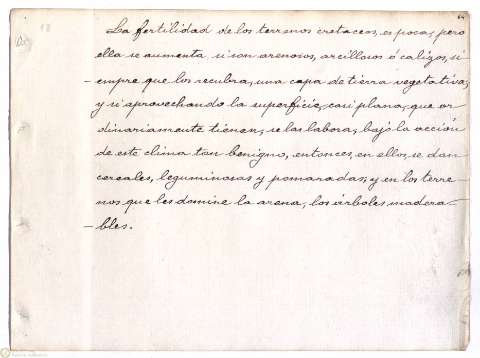 18
La fertilidad de los terrenos cretaceos, es poca, pero
ella se aumenta si son arenosos, arcillosos ó calizos, si
-empre que los recubra, una capa de tierra vegetativa,
y si aprovechando la superficie, casi plana, que or
dinariamente tienen, se las labora, bajo la acción
de este clima tan benigno, entonces, en ellos, se dan
cereales, leguminosas y pomaradas; y en los terre
nos que les domine la arena, los árboles madera-
-bles.